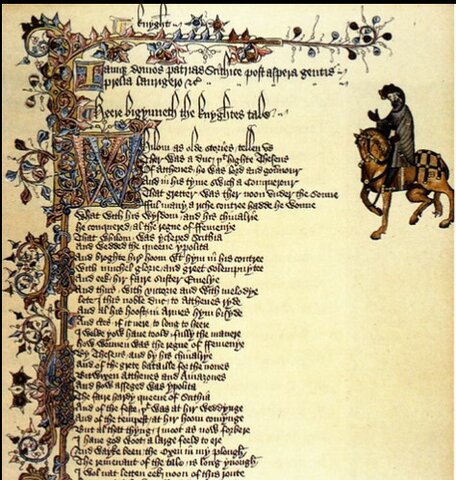 Knyght
Iamque domos patrias Scithice post aspera gentis
prelia laurigero &c
Heere bigynneth the knyghtes tale
Whilom as olde stories tellen us
Ther was a duc þt highte Theseus
Of Atthenes he was lord and gouernour
And in his tyme swich a Conquerour
That gretter was ther noon vnder the sonne
Ful many a riche contree hadde he wonne
What with his wysdom and his chiualrie
he conquered al the regne of ffemenye
That whilom was ycleped Scithia
And wedded the queene ypolita
And broghte hir hoom wt hym in his contree
With muchel glorie and greet solempnytee
And eek hir faire suster Emelye
And thus with victorie and with melodye
lete I this noble duc to Atthenes ryde
And al his hoost in Armes hym bisyde
And certes if it nere to long to heere
I wolde yow haue toold fully the manere
how wonnen was the regne of ffemenye
By Theseus and by his chiualrye
And of the grete bataille for the nones
Bitwixen Atthenes and Amazones
And how asseged was ypolita
The faire hardy queene of Scithia
And of the feste þt was at hir weddynge
And of the tempest at hir hoom comynge
But al that thyng I moot as now forbere
I haue god woot a large feeld to ere
And wayke been the Oxen in my plough
The remenant of the tale is long ynough
I wol nat letten eek noon of this route